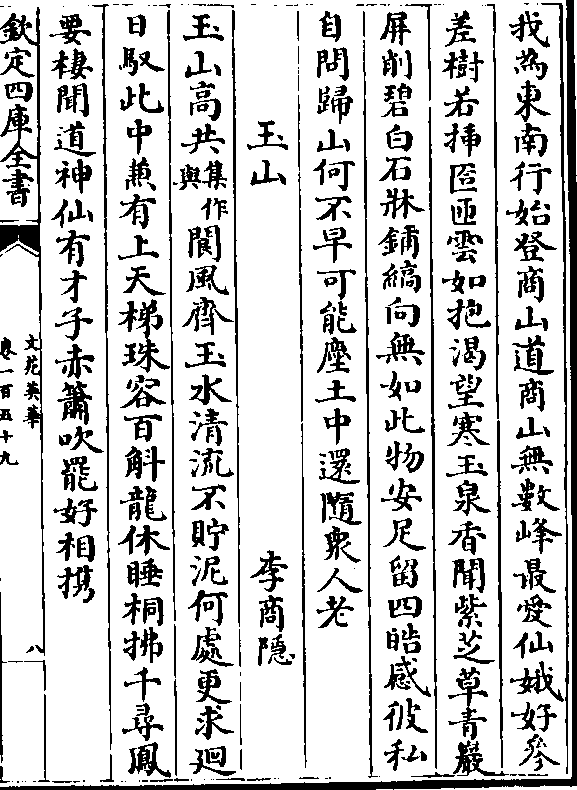 我為東南行始登商山道商山無數峰最愛仙娥好參
差樹若揷匼匝雲如抱渴望寒玉泉香聞紫芝草青巖
屏削碧白石牀鋪縞向無如此物安足留四皓感彼私
自問歸山何不早可能塵土中還隨衆人老
玉山 李商隱
玉山高共集作與閬風齊玉水清流不貯泥何處更求迴
日馭此中兼有上天梯珠容百斛龍休睡桐拂千尋鳳
要棲聞道神仙有才子赤簫吹罷好相攜
欽定四庫全書
文苑英華
卷一百五十九
八